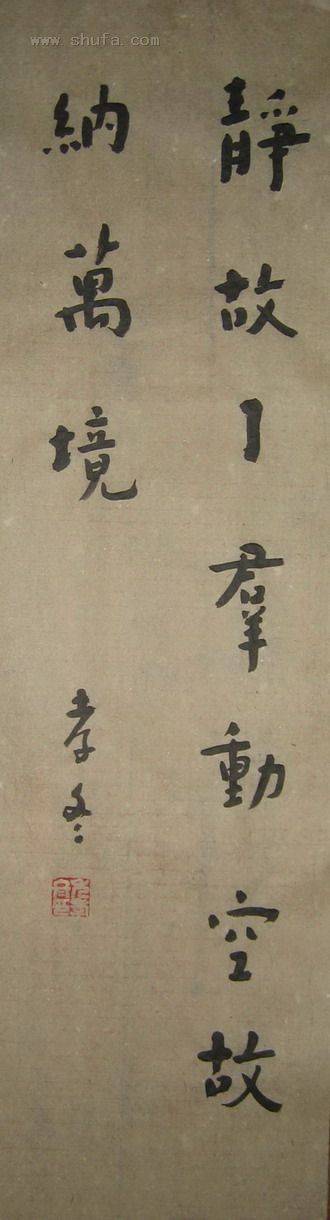 www.shufa.com
靜故了羣動空故
納萬境
孝冬